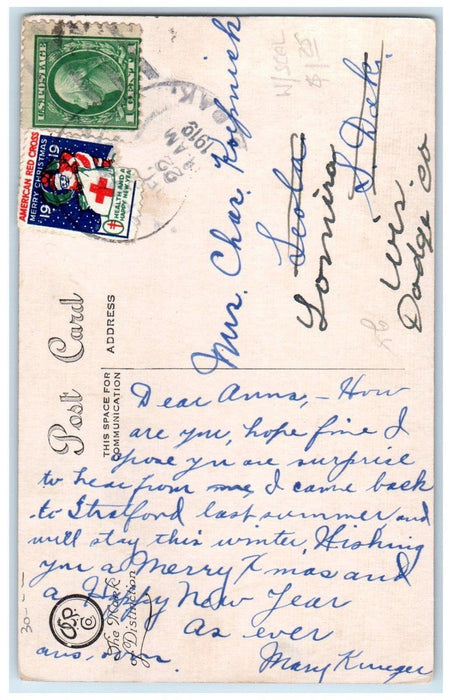 U.S. POSTAGE
1 CENT 1
AMERICAN RED CROSS
MERRY CHRISTMAS
19 19
HEALTH AND A
HAPPY NEW YEAR
DEC
22
AM
1919
DAK.
W/SEAL
$1.25
Mrs. Char. Koepnick
Leola
S Dak.
Lomira
Wis
Dodge Co
Post Card
THIS SPACE FOR
COMMUNICATION
ADDRESS
Dear Anna, – How
are you, hope fine I
spose yu are surprise
to hear from me, I came back
to Stratford last summer and
will stay this winter, Wishing
you a Merry X mas and
a Happy New Year
As ever
Mary Krueger
ans. soon.
Co.
The Mark
of Distinction
30--